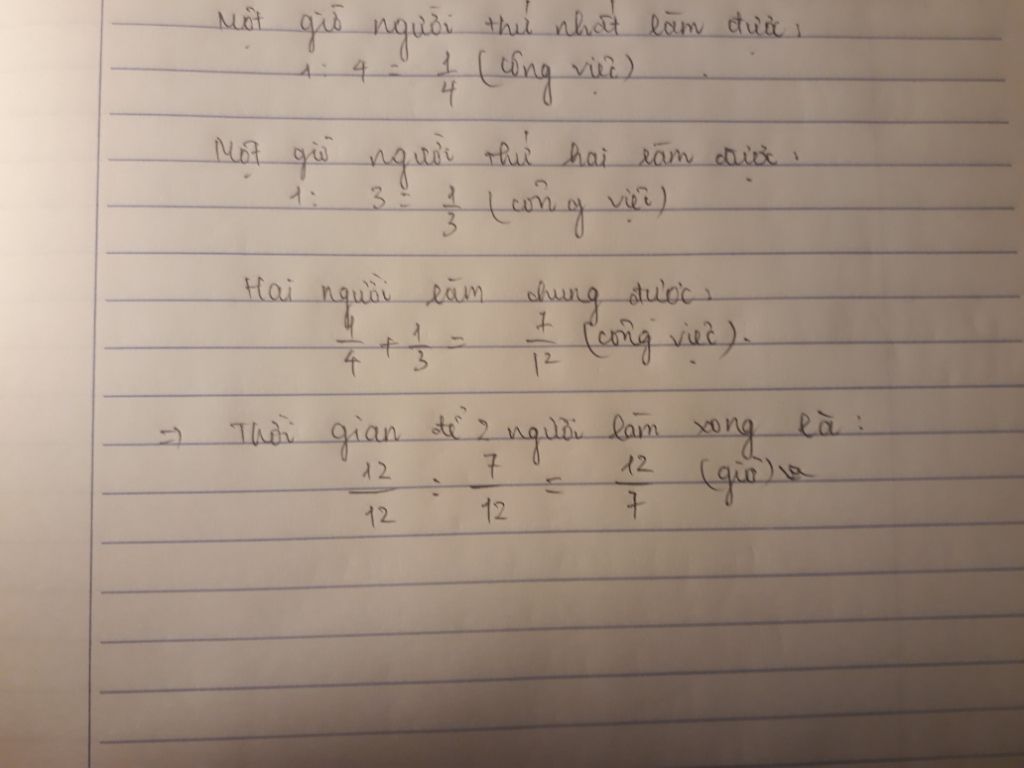 Một giờ người thứ nhất làm được:
1 : 4 = 1/4 (công việc)
Một giờ người thứ hai làm được:
1 : 3 = 1/3 (công việc)
Hai người làm chung được:
1/4 + 1/3 = 7/12 (công việc).
=> Thời gian để 2 người làm xong là:
12/12 : 7/12 = 12/7 (giờ)